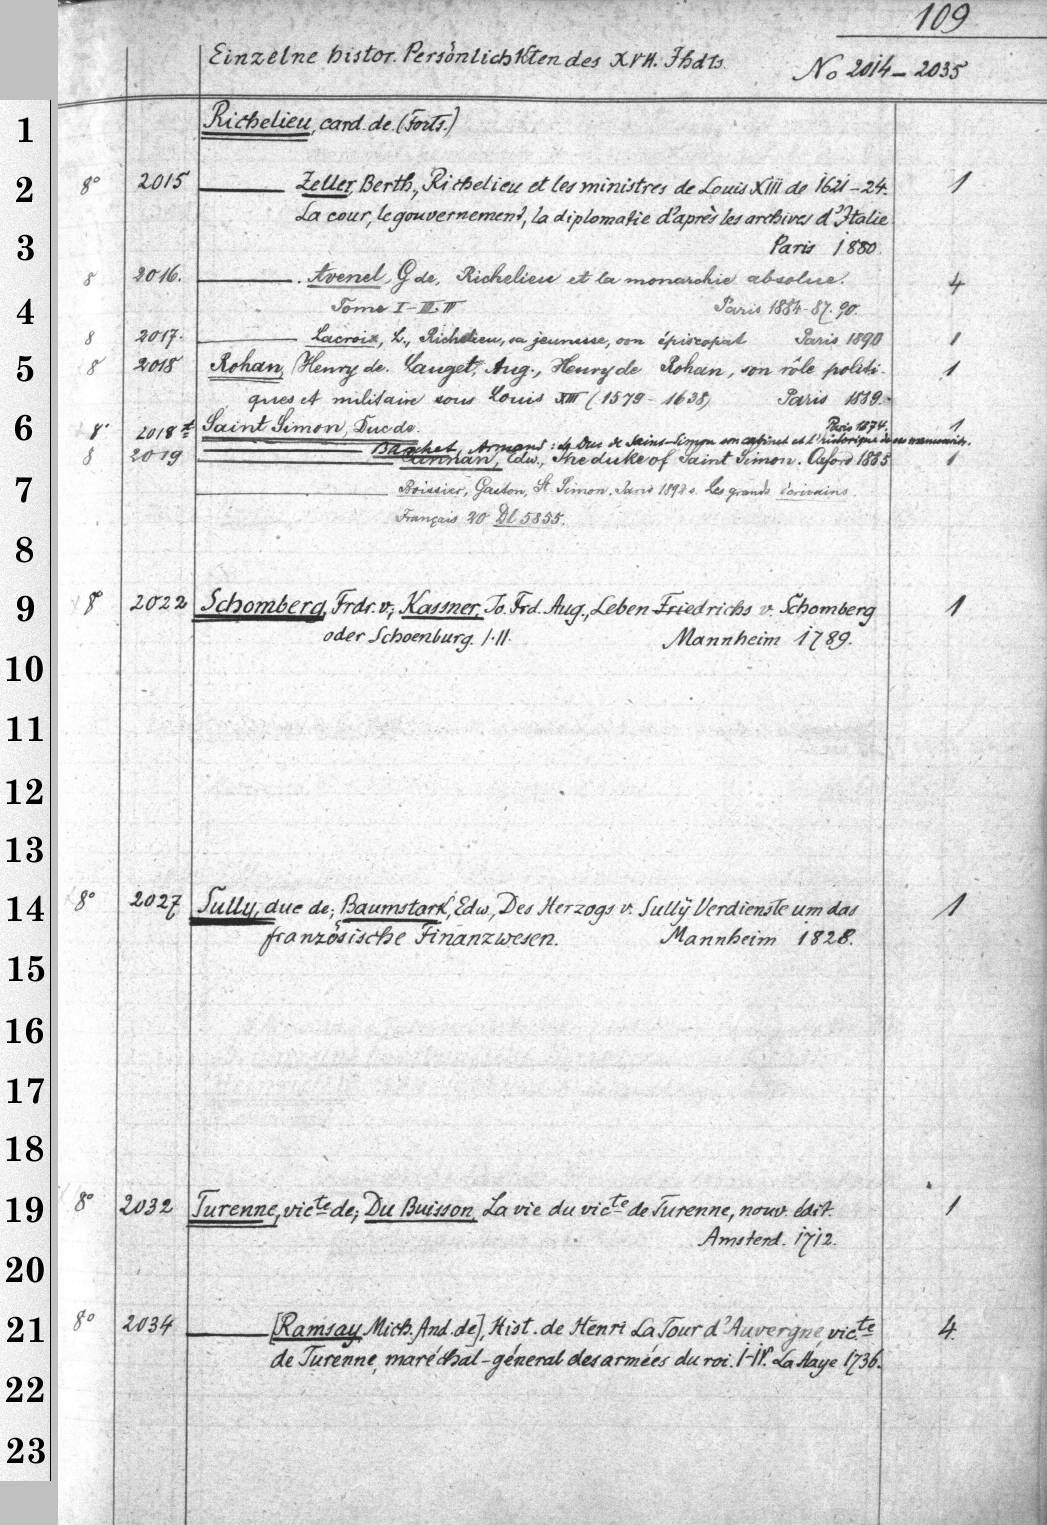 109
Einzelne histor. Persönlichkten des XVII. Jhdts.
No 2014 – 2035
1
Richelieu, card. de. (Forts.)
2 8° 2015 Zeller, Berth., Richelieu et les ministres de Louis XIII de 1621–24. 1
La cour, le gouvernement, la diplomatie d'après les archives d'Italie
3 Paris 1880.
8 2016. Avenel, G de, Richelieu et la monarchie absolue. 4
4 Tome I–III, IV Paris 1884–87. 90.
8 2017. Lacroix, L., Richelieu, sa jeunesse, son épiscopat Paris 1890 1
5 8° 2018 Rohan, (Henry de. Lauget, Aug., Henry de Rohan, son rôle politi- 1
ques et militaire sous Louis XIII (1579–1638) Paris 1889.
6 8° 2018 Saint Simon, Duc de. Paris 1874. 1
Baschet, Armand: Le Duc de Saint-Simon son cabinet et l'historique de ses manuscrits.
8 2019 Cannan, Edw., The duke of Saint Simon. Oxford 1885 1
7 Boissier, Gaston, St. Simon. Paris 1892. Les grands écrivains
Français 20 Dl 5855.
8
9 8° 2022 Schomberg, Frdr. v.; Kassner, Jo. Frd. Aug., Leben Friedrichs v. Schomberg 1
oder Schoenburg. I.II. Mannheim 1789.
10
11
12
13
14 8° 2027 Sully, duc de; Baumstark, Edw., Des Herzogs v. Sully Verdienste um das 1
französische Finanzwesen. Mannheim 1828.
15
16
17
18
19 8° 2032 Turenne, victe de; Du Buisson, La vie du victe de Turenne, nouv. édit. 1
Amsterd. 1712.
20
21 8° 2034 [Ramsay, Mich. And. de], Hist. de Henri La Tour d'Auvergne, victe 4.
de Turenne, maréchal-général des armées du roi. I–IV. La Haye 1736.
22
23